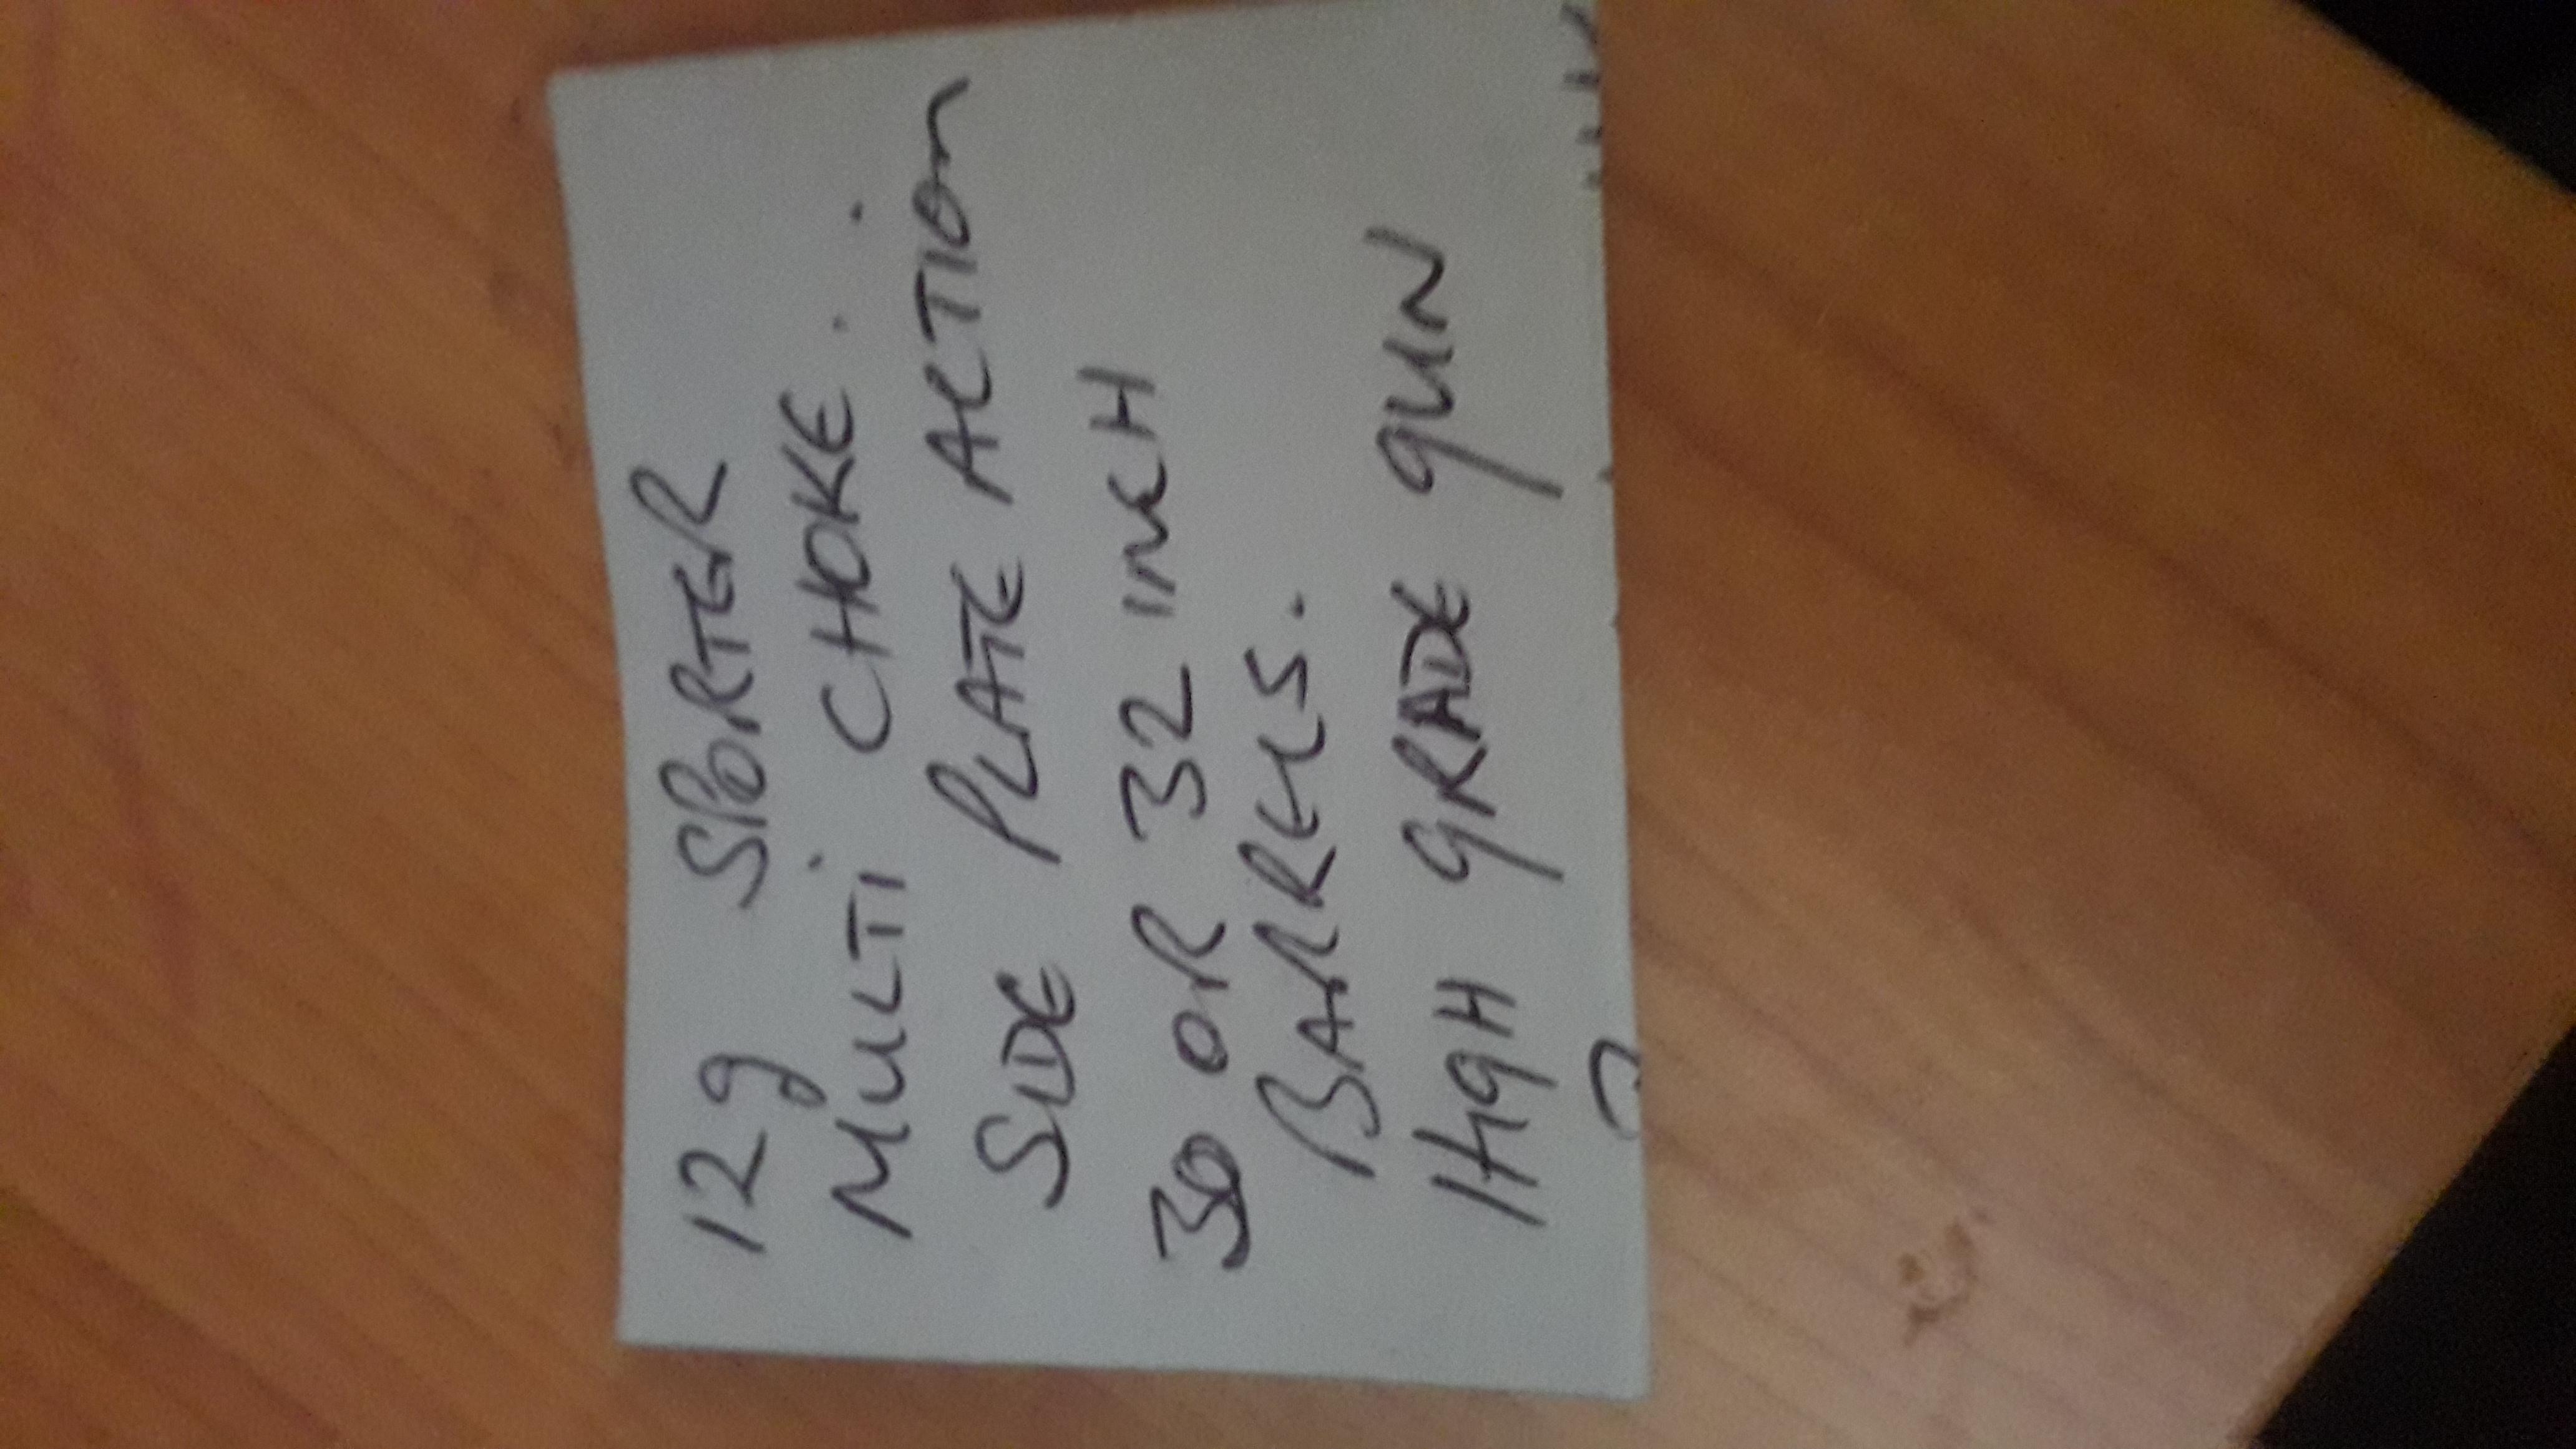 12g SPORTER
MULTI CHOKE.
SIDE PLATE ACTION
30 OR 32 INCH
BARRELS.
HIGH GRADE GUN